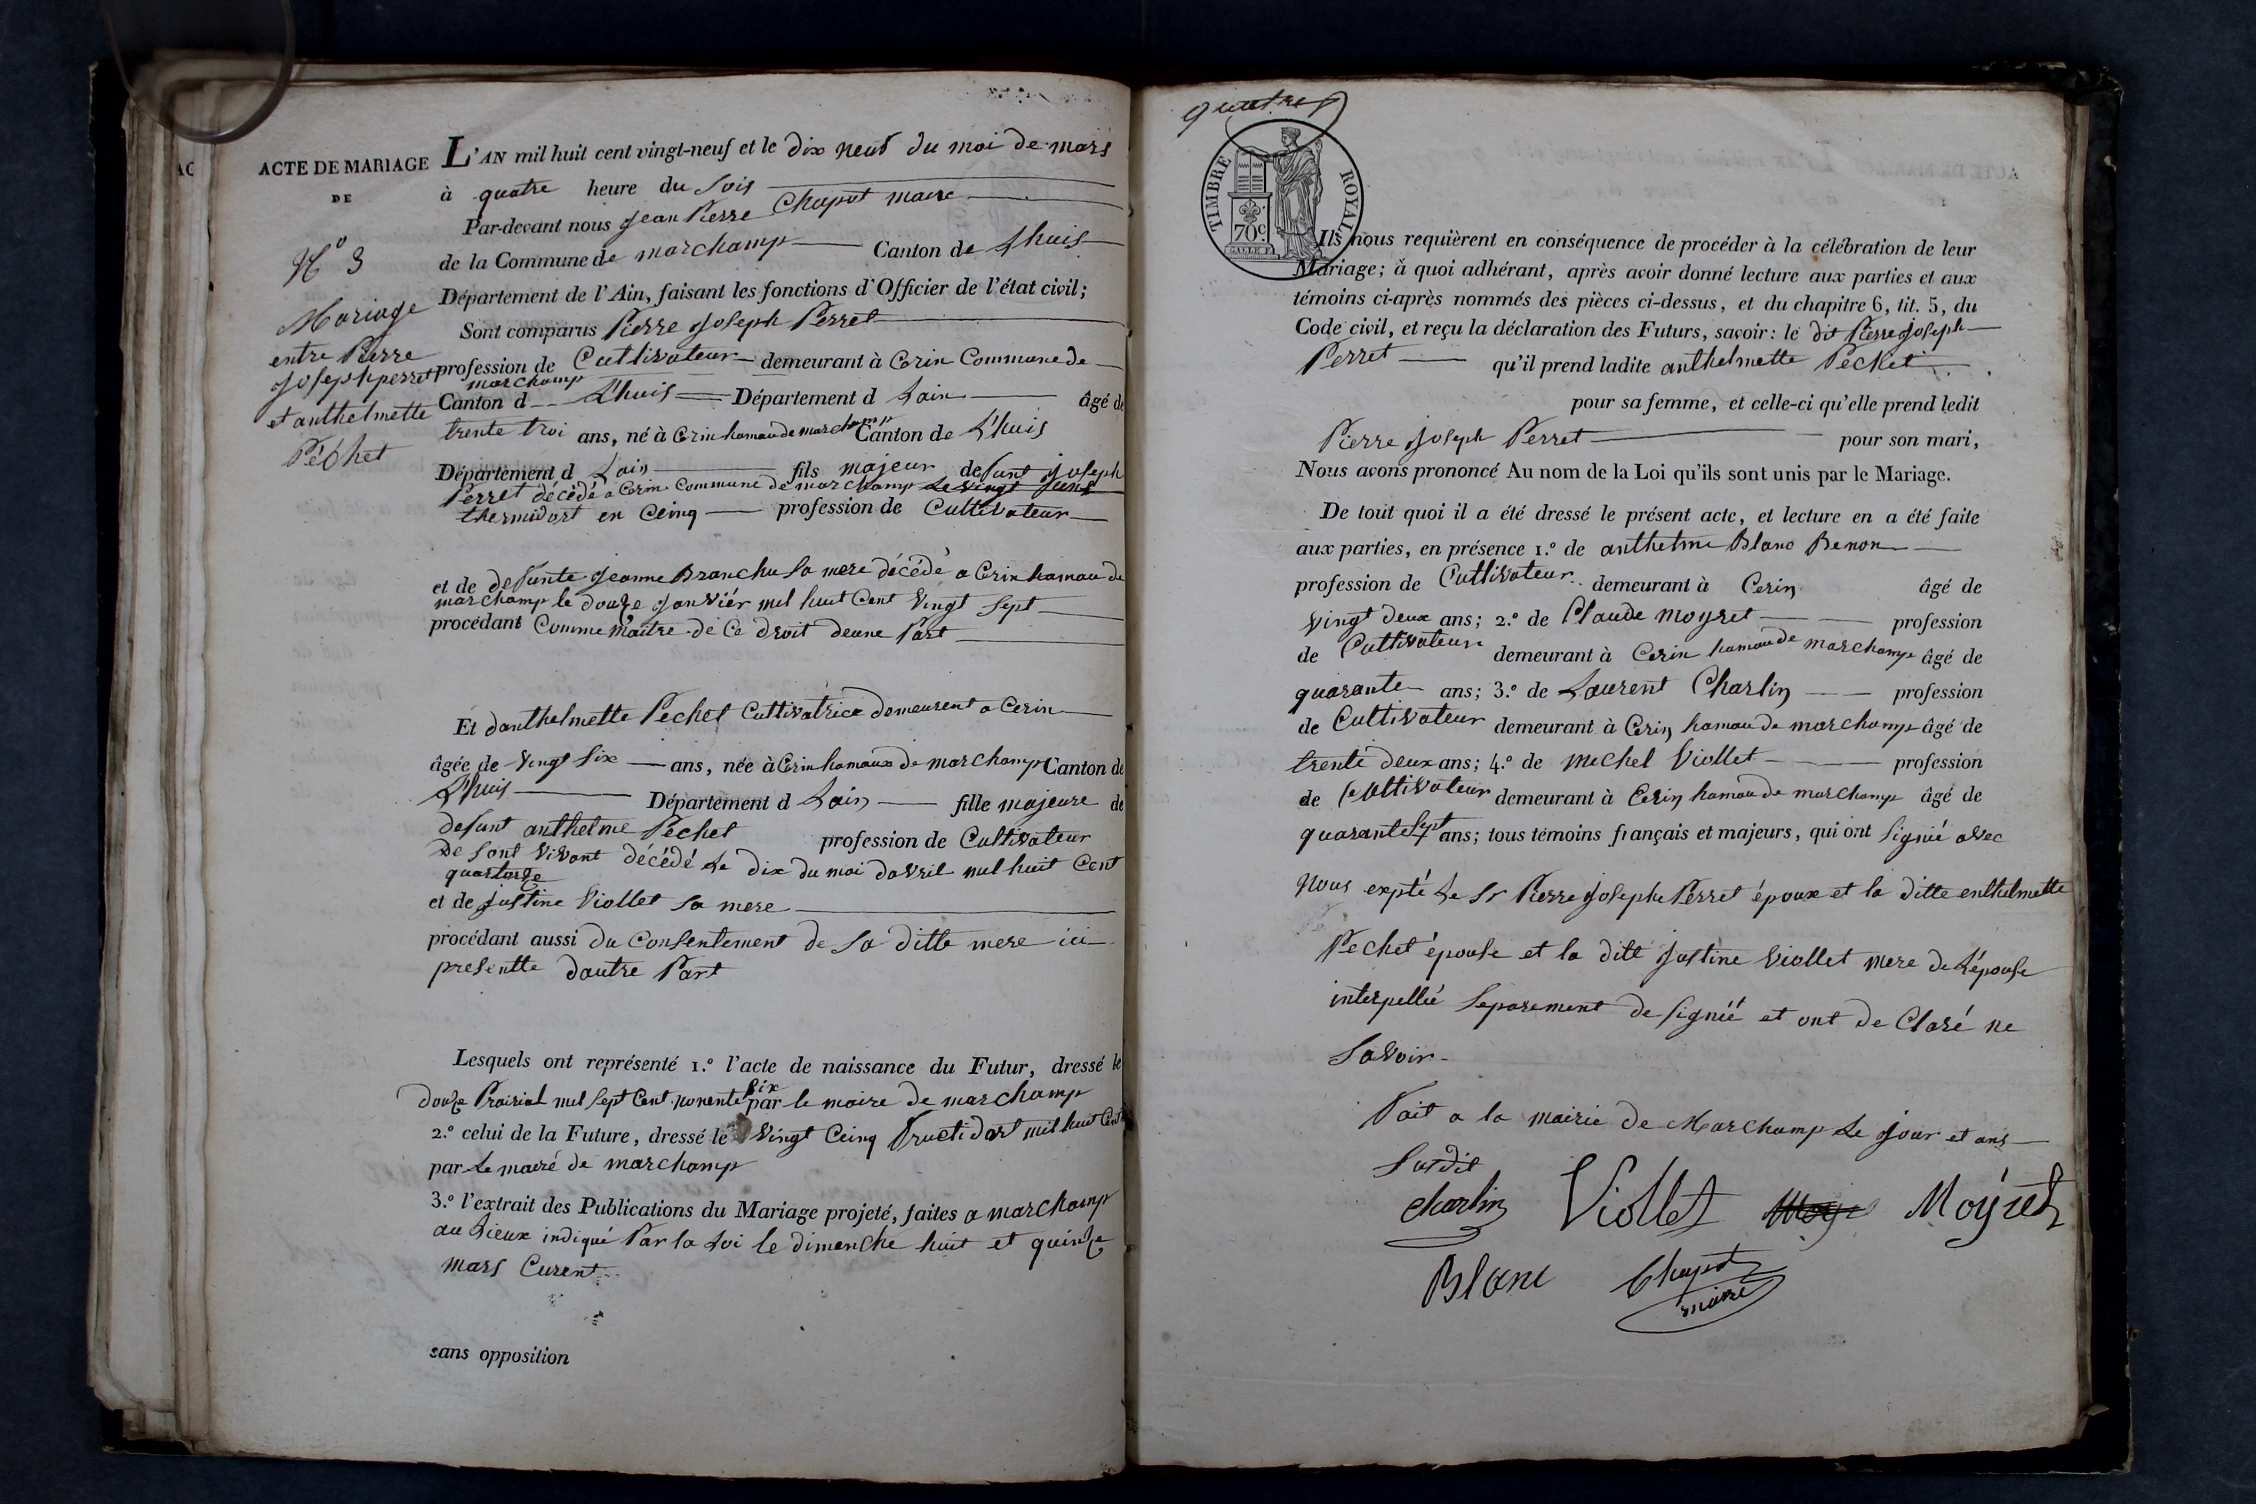 ACTE DE MARIAGE
DE
N.º 3
Mariage
entre Pierre
Joseph perret
et anthelmette
Péchet
L'AN mil huit cent vingt-neuf et le dix neuf du moi de mars
à quatre heure du soir
Par-devant nous Jean Pierre Chapot maire
de la Commune de marchamp Canton de Lhuis
Département de l'Ain, faisant les fonctions d'Officier de l'état civil;
Sont comparus Pierre Joseph Perret
profession de Cultivateur demeurant à Cerin Commune de
marchamp
Canton d Lhuis Département d Lain âgé de
trente troi ans, né à Cerin hamau de marchamp Canton de L'huis
Département d Lain fils majeur defunt joseph
Perret décédé a Cerin Commune de marchamp le vingt
thermidort en Ceinq profession de Cultivateur
et de defunte Jeanne Branchu sa mere décédé a Cerin hamau de
marchamp le douze Janviér mil huit Cent vingt sept
procédant Comme maitre de Ce droit deune Part
Et danthelmette Pechet Cultivatrice demeurent a Cerin
âgée de vingt six ans, née à Cerin hamaux de marchamp Canton de
L'huis Département d Lain fille majeure de
defunt anthelme Péchet profession de Cultivateur
de sont vivant décédé le dix du moi davril mil huit Cent
quartorze
et de justine Viollet sa mere
procédant aussi du Consentement de sa ditte mere ici
presentte dautre Part
Lesquels ont représenté 1.º l'acte de naissance du Futur, dressé le
douze Prairial mil sept Cent nonente six par le maire de marchamp
2.º celui de la Future, dressé le vingt Ceinq Fructidort mil huit Cent
par le mairé de marchamp
3.º l'extrait des Publications du Mariage projeté, faites a marchamp
au Lieux indiqué Par la Loi le dimenche huit et quinze
mars Curent
sans opposition
quatre
TIMBRE ROYAL
70c
Ils nous requièrent en conséquence de procéder à la célébration de leur
Mariage; à quoi adhérant, après avoir donné lecture aux parties et aux
témoins ci-après nommés des pièces ci-dessus, et du chapitre 6, tit. 5, du
Code civil, et reçu la déclaration des Futurs, savoir: le dit Pierre Joseph
Perret qu'il prend ladite anthelmette Péchet
pour sa femme, et celle-ci qu'elle prend ledit
Pierre Joseph Perret pour son mari,
Nous avons prononcé Au nom de la Loi qu'ils sont unis par le Mariage.
De tout quoi il a été dressé le présent acte, et lecture en a été faite
aux parties, en présence 1.º de anthelme Blanc Benon
profession de Cultivateur demeurant à Cerin âgé de
vingt deux ans; 2.º de Claude Moyret profession
de Cultivateur demeurant à Cerin hamau de marchamp âgé de
quarante ans; 3.º de Laurent Charlin profession
de Cultivateur demeurant à Cerin hamau de marchamp âgé de
trente deux ans; 4.º de Michel Viollet profession
de Cultivateur demeurant à Cerin hamau de marchamp âgé de
quarante sept ans; tous témoins français et majeurs, qui ont signié avec
Nous expté le Sr Pierre joseph Perret époux et la ditte enthelmette
Pechet épouse et la ditte justine Viollet mere de Lépouse
interpellié separement de signiét et ont de Claré ne
savoir
Fait a la mairie de Marchamp le jour et ans
susdit
Charlin Viollet Moyret
Blanc Chapot
maire